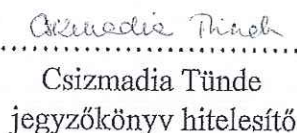 Csizmadia Tünde
Csizmadia Tünde
jegyzőkönyv hitelesítő